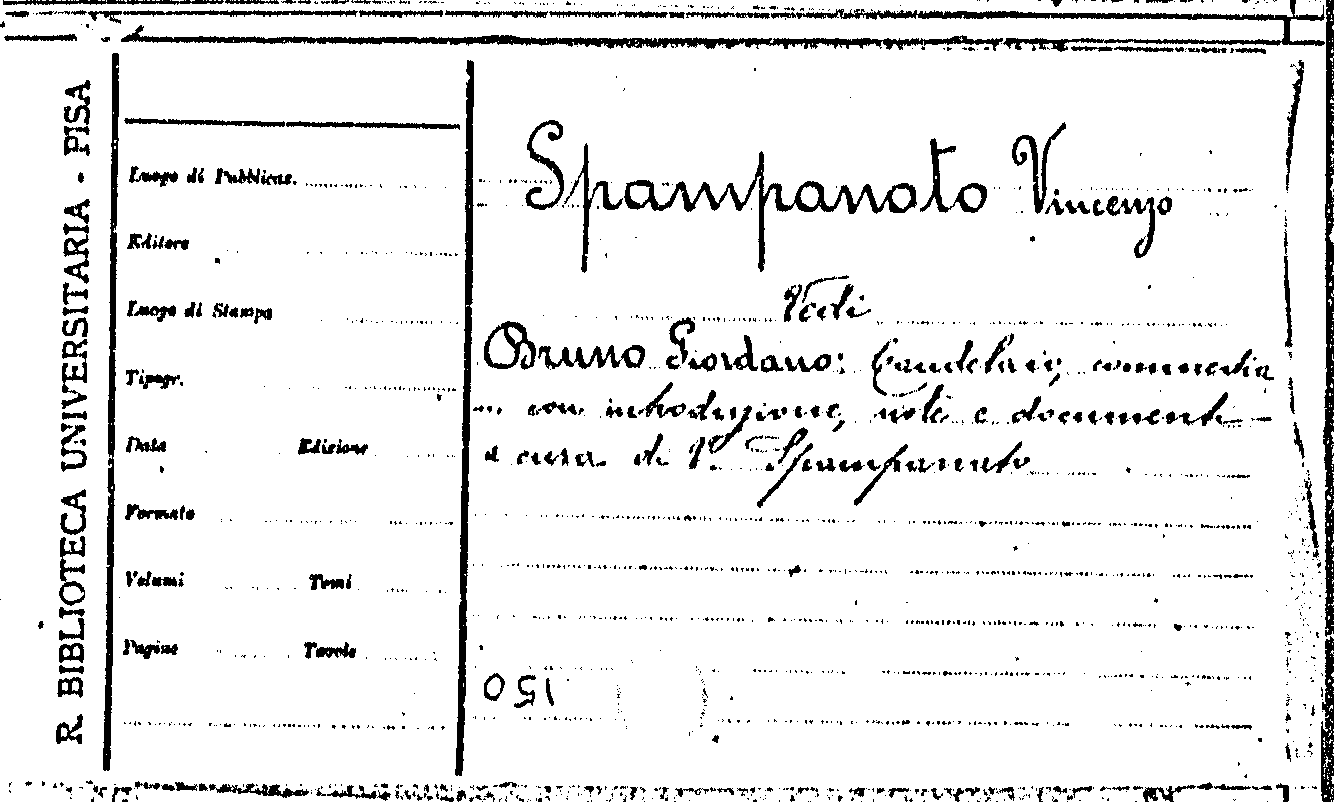 R. BIBLIOTECA UNIVERSITARIA - PISA
Luogo di Pubblicaz.
Editore
Luogo di Stampa
Tipogr.
Data Edizione
Formato
Volumi Tomi
Pagine Tavole
Spampanato Vincenzo
Vedi
Bruno Giordano: Candelaio, commedia
... con introduzione, note e documenti
a cura di V. Spampanato
150